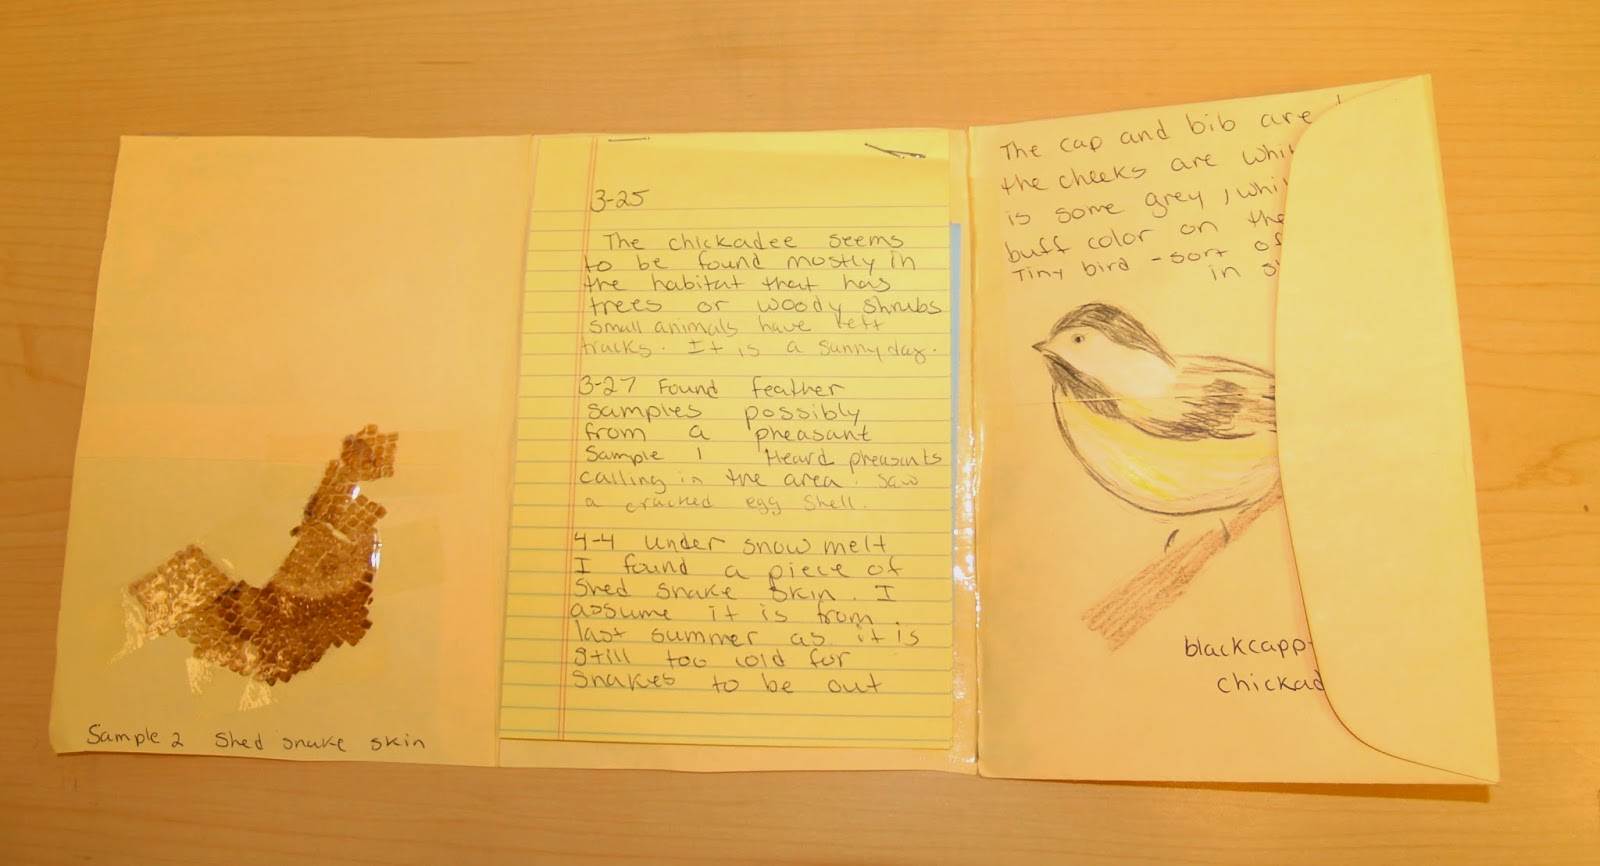 Sample 2 Shed snake skin
3-25
The chickadee seems
to be found mostly in
the habitat that has
trees or woody shrubs
small animals have left
tracks. It is a sunny day.
3-27 Found feather
samples possibly
from a pheasant
Sample 1 Heard pheasants
calling in the area. Saw
a cracked egg shell.
4-4 under snow melt
I found a piece of
shed snake skin. I
assume it is from
last summer as it is
still too cold for
snakes to be out
The cap and bib are
the cheeks are
is some grey,
buff color on the
Tiny bird - sort of
in
blackcapp
chickad